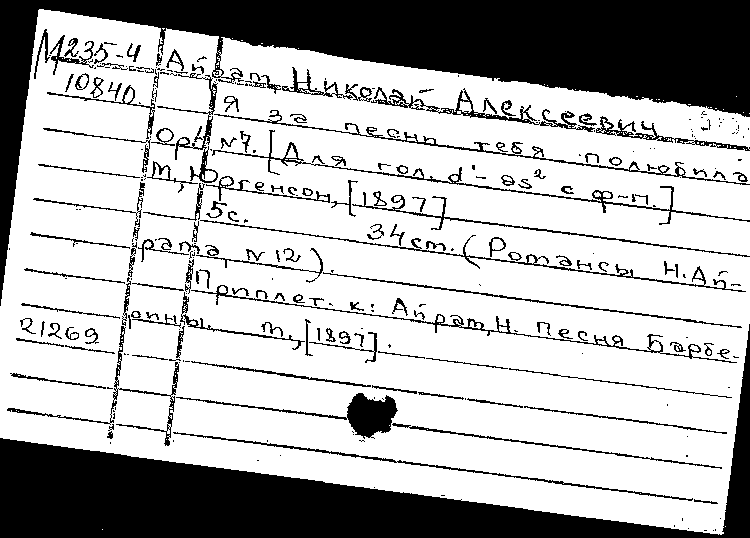 М235-4
10840
Айрат, Николай Алексеевич
Я за песни тебя полюбила
Ор4, N7. [Для гол. d¹-as² с ф-п.]
М, Юргенсон, [1897]
5с. 34см. (Романсы Н.Ай-
рата, N12).
Приплет. к: Айрат, Н. Песня Барбе-
рины. М., [1897].
21269